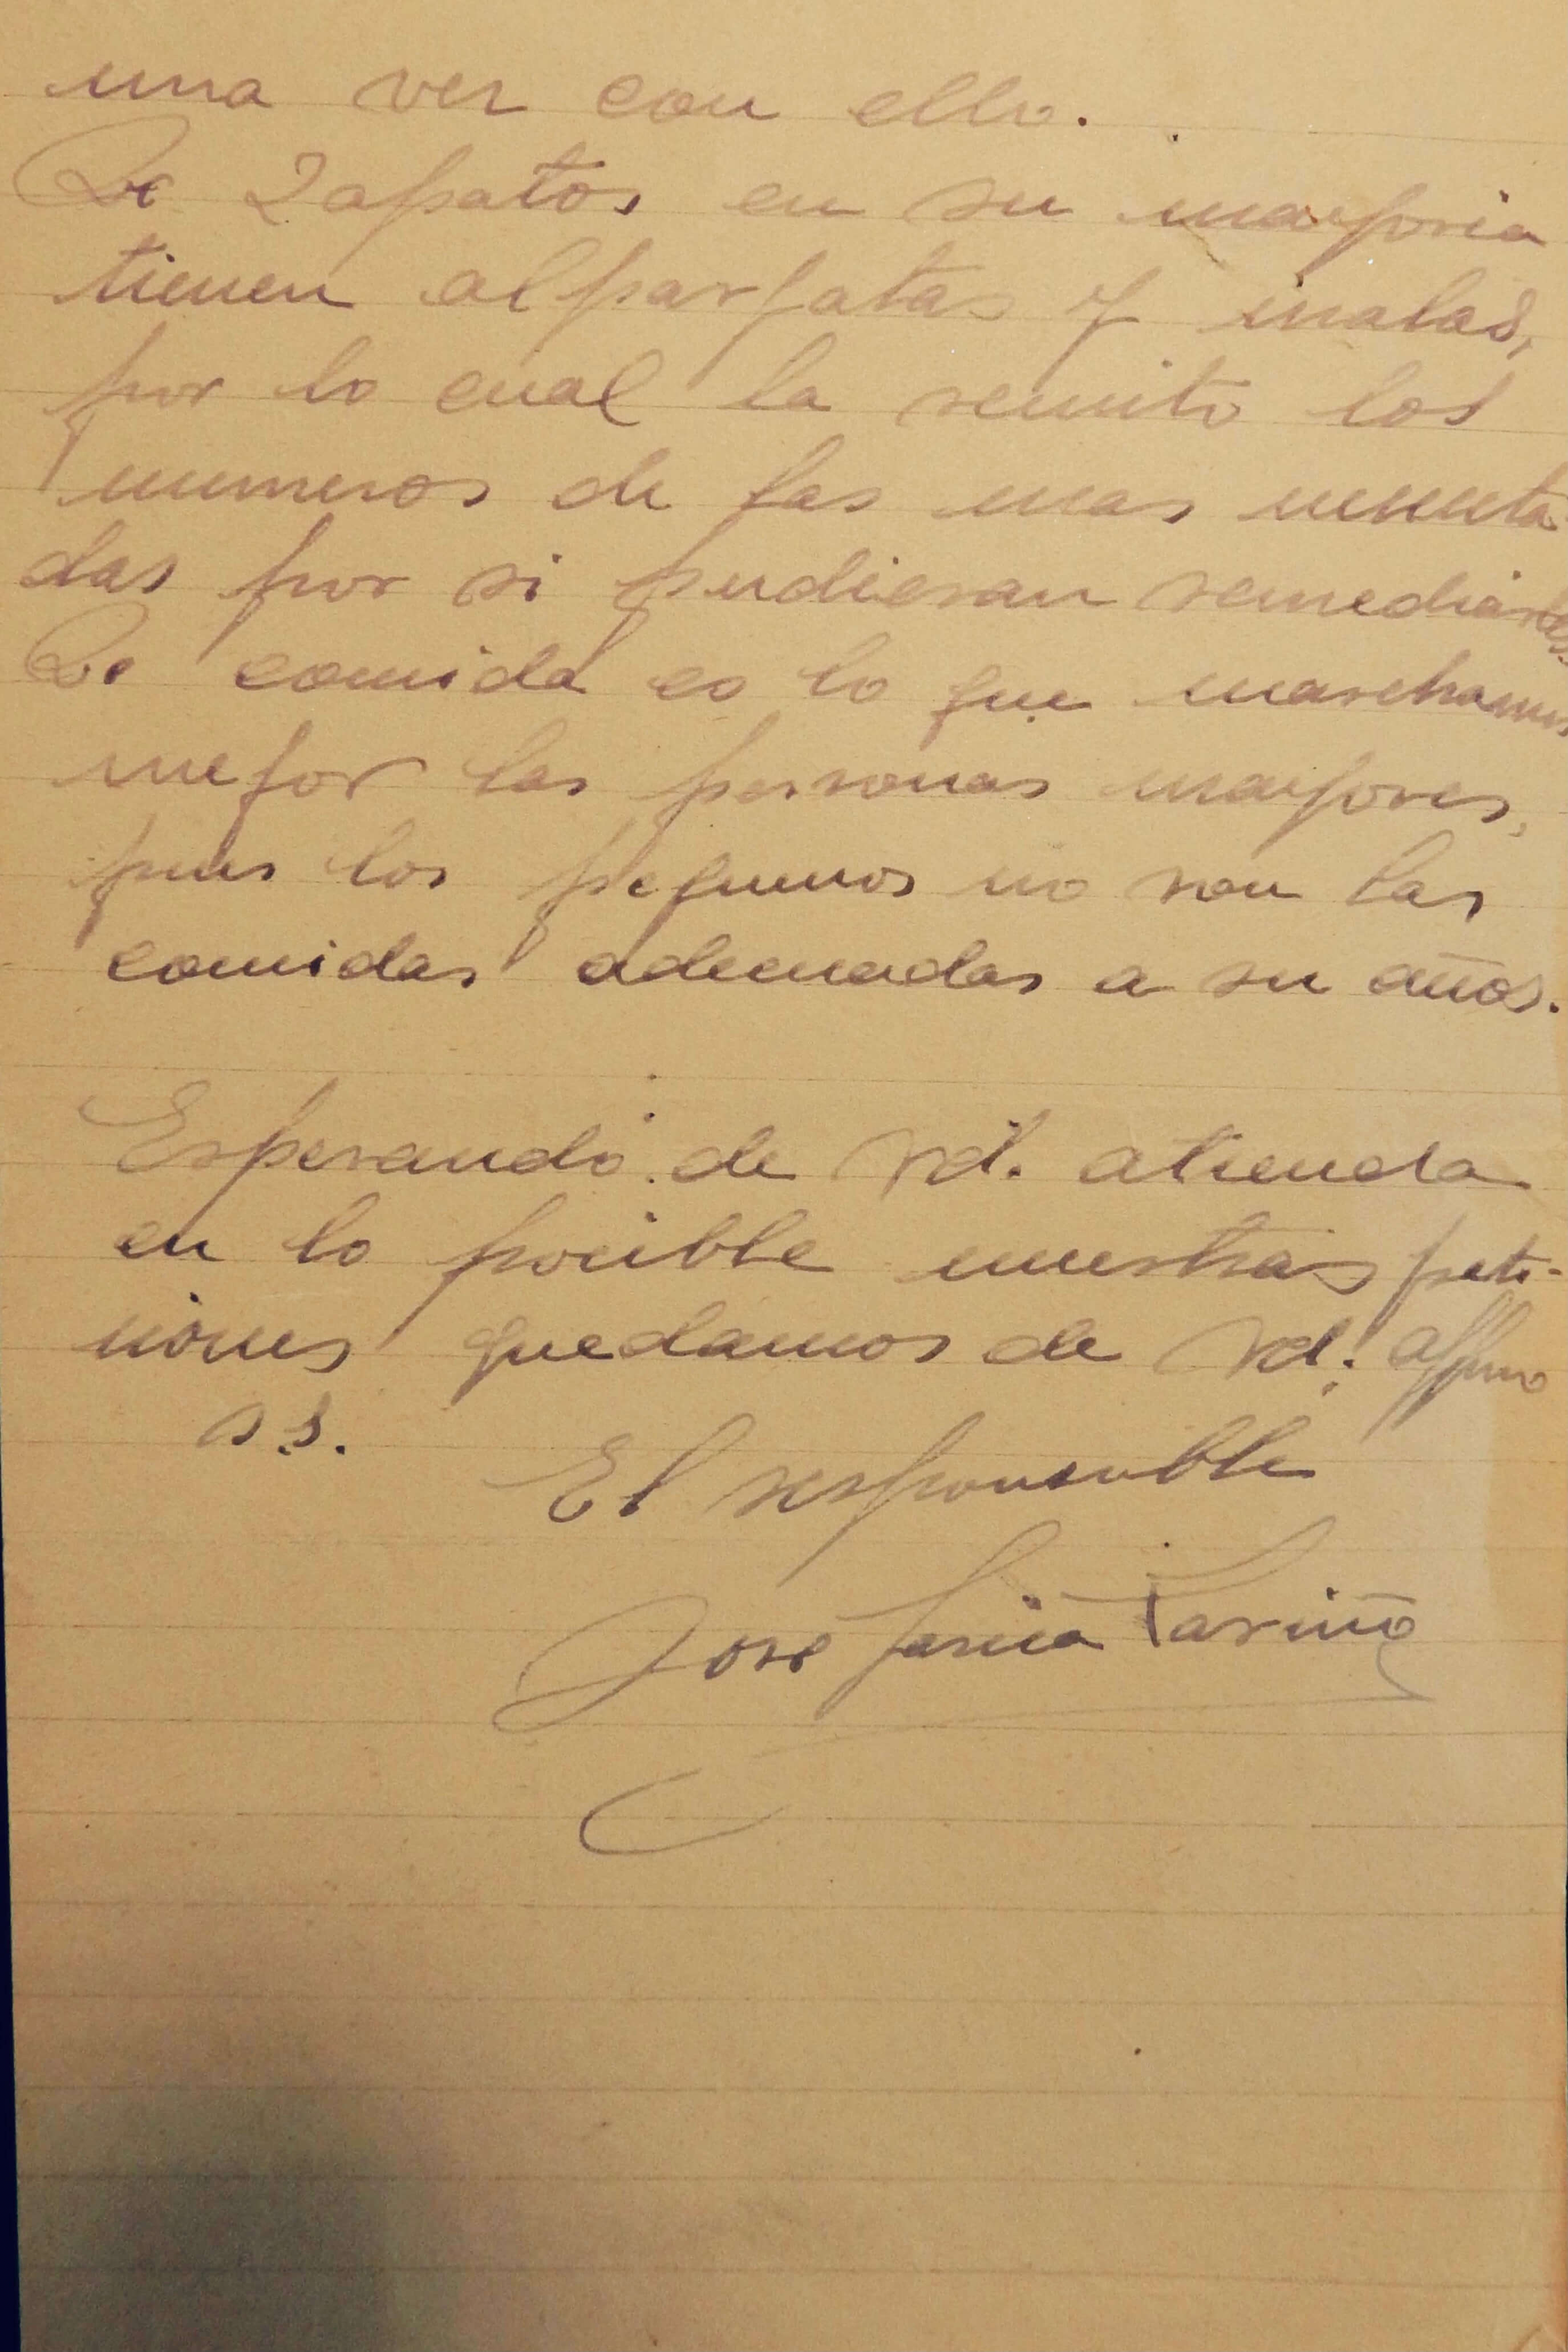 una vez con ello.
De zapatos en su mayoria
tienen alpargatas y malas,
por lo cual la remito los
numeros de las mas
das por si pudieran
De comida es lo que marchamos
mejor las personas mayores,
pues los pequenos no son las
comidas adecuadas a su años.
Esperando de Vd. atienda
en lo posible nuestras peti-
ciones quedamos de Vd. affmo
s s.
El responsable
Jose Fariña Fariña